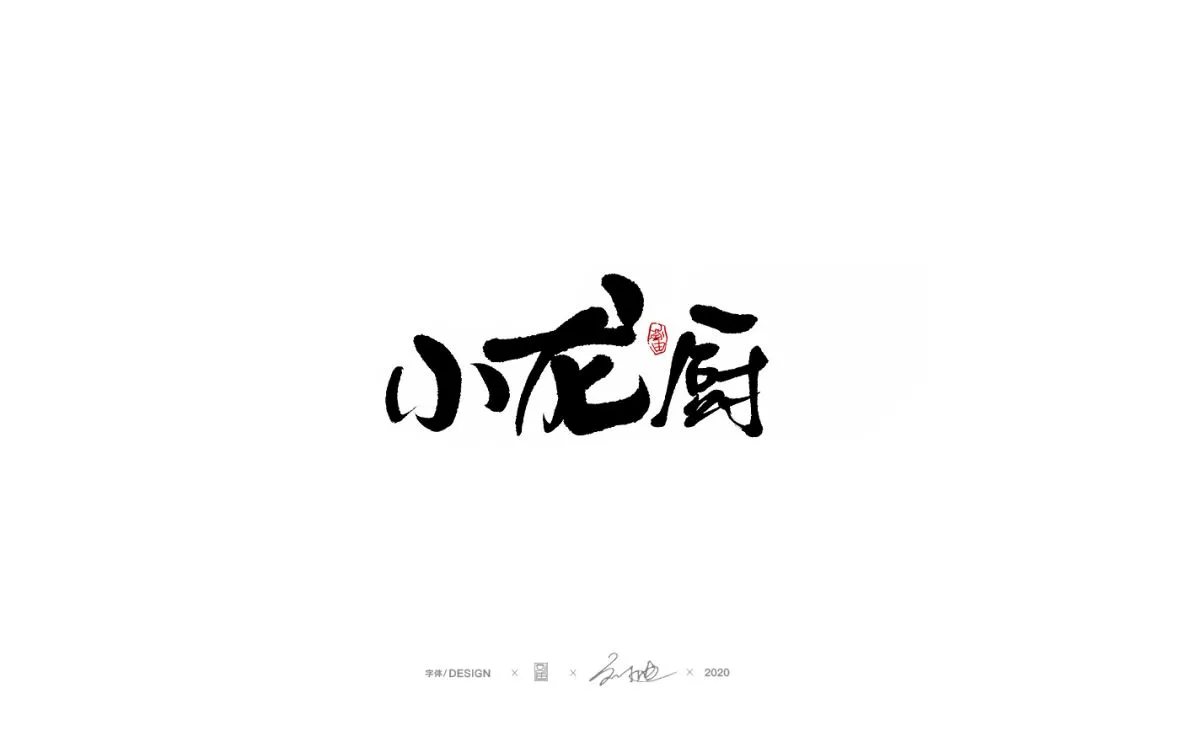 小龙厨
字体/DESIGN × × × 2020